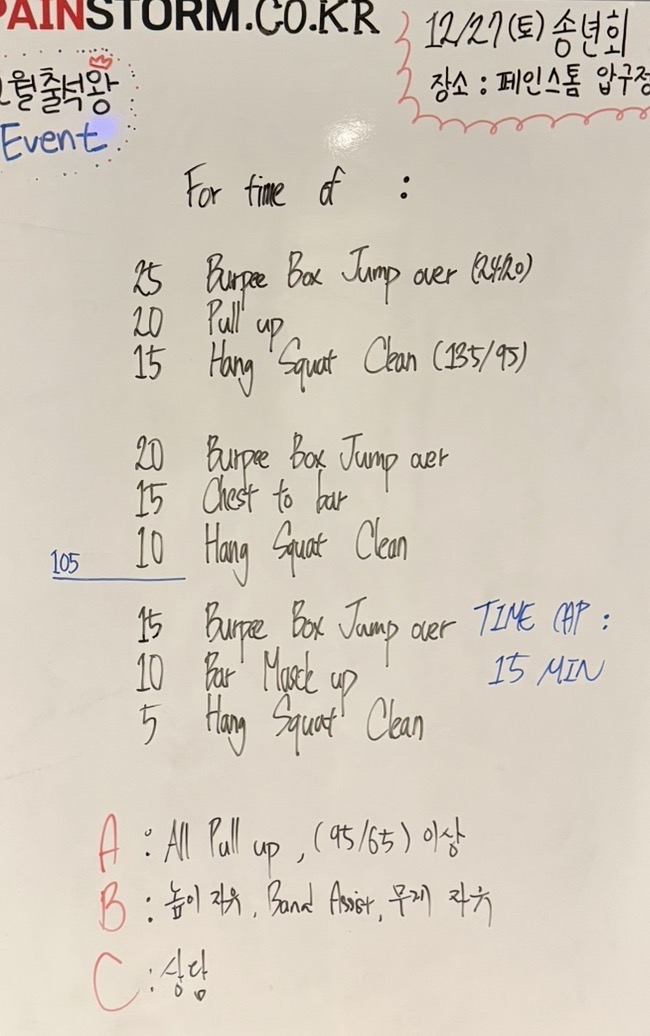 PAINSTORM.CO.KR
12/27(토) 송년회
장소 : 페인스톰 압구정
월 출석왕
Event
For time of :
25 Burpee Box Jump over (24/20)
20 Pull up
15 Hang Squat Clean (135/95)
20 Burpee Box Jump over
15 Chest to bar
10 Hang Squat Clean
105
15 Burpee Box Jump over
TIME CAP :
15 MIN
10 Bar Muscle up
5 Hang Squat Clean
A : All Pull up, (95/65) 이상
B : 높이 자유, Band Assist, 무게 자유
C : 상담